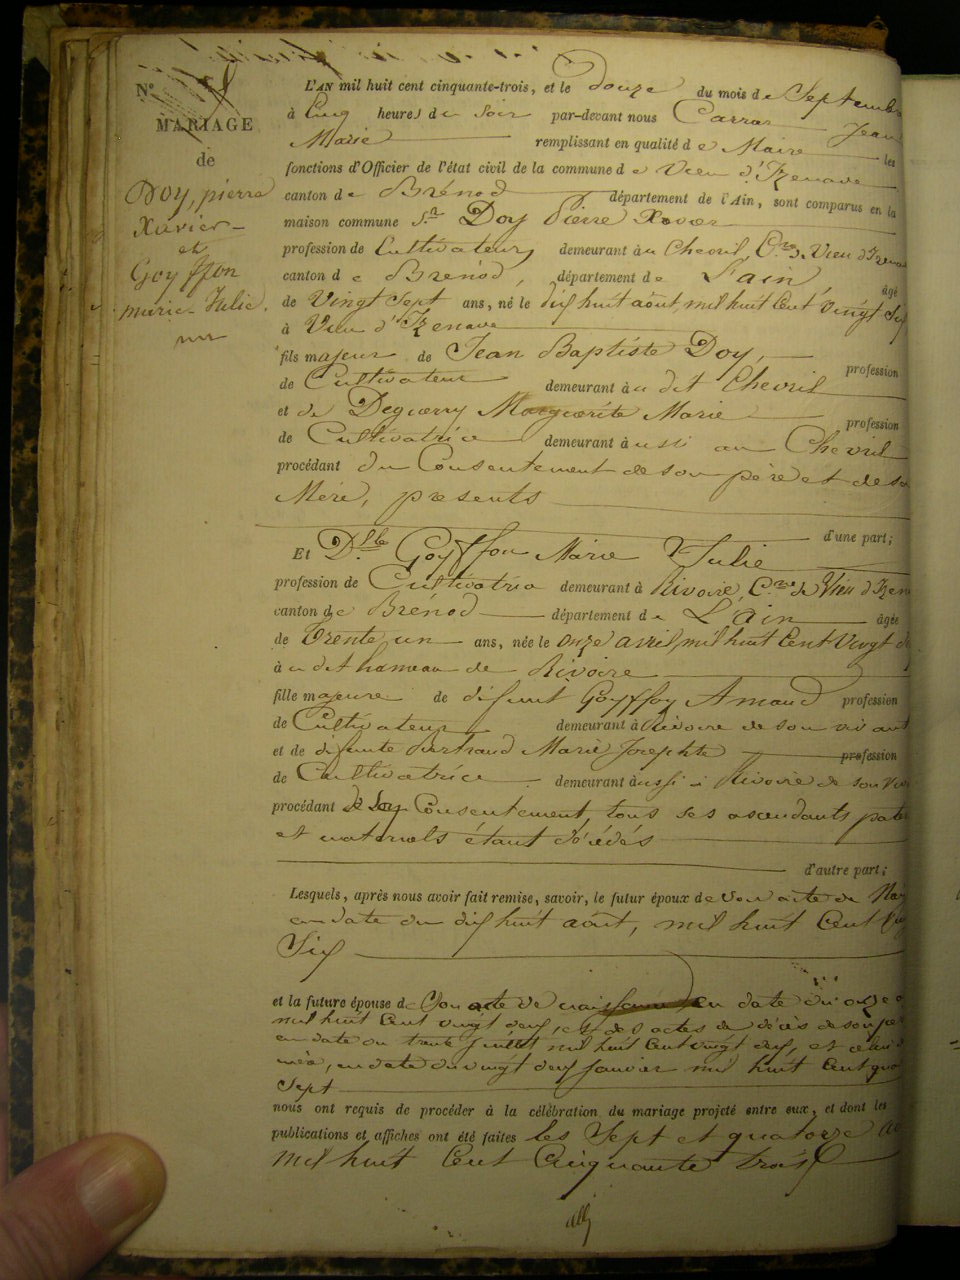 N°
MARIAGE
de
Doy, pierre
Xavier
et
Goyffon
marie-Julie.
L'AN mil huit cent cinquante-trois, et le douze du mois de Septembre
à Cinq heures du Soir par-devant nous Carraz Jean
Marie remplissant en qualité de Maire les
fonctions d'Officier de l'état civil de la commune de Vieu d'Izenave
canton de Brénod département de l'Ain, sont comparus en la
maison commune Sr Doy Pierre Xavier
profession de Cultivateur, demeurant au Chevril, Cne de Vieu d'Izenave
canton de Brénod, département de L'ain âgé
de Vingt Sept ans, né le dix huit août, mil huit Cent Vingt Six
à Vieu d'Izenave
fils majeur de Jean Baptiste Doy, profession
de Cultivateur demeurant au dit Chevril
et de Deguerry Marguerite Marie profession
de Cultivatrice demeurant aussi au Chevril
procédant du Consentement de son père et de sa
Mère, presents
d'une part;
Et Dlle Goyffon Marie Julie
profession de Cultivatrice demeurant à Rivoire, Cne de Vieu d'Izen
canton de Brénod département de L'ain âgée
de Trente un ans, née le onze avril, mil huit Cent Vingt
au dit hameau de Rivoire
fille majeure de défunt Goyffon Amand profession
de Cultivateur demeurant à Rivoire de son vivant
et de défunte Bertrand Marie Josephte profession
de Cultivatrice demeurant aussi à Rivoire de son viv
procédant de Son Consentement, tous ses ascendants pate
et maternels étant décédés
d'autre part;
Lesquels, après nous avoir fait remise, savoir, le futur époux de Son acte de Nais
en date du dix huit août, mil huit Cent Vingt
Six
et la future épouse de Son acte de naissance en date du onze
mil huit Cent vingt deux, et des actes de décès de son père
en date du trente Juillet mil huit Cent vingt deux, et celui
mère, en date du vingt deux Janvier mil huit Cent qua
Sept
nous ont requis de procéder à la célébration du mariage projeté entre eux, et dont les
publications et affiches ont été faites les Sept et quatorze
mil huit Cent Cinquante trois